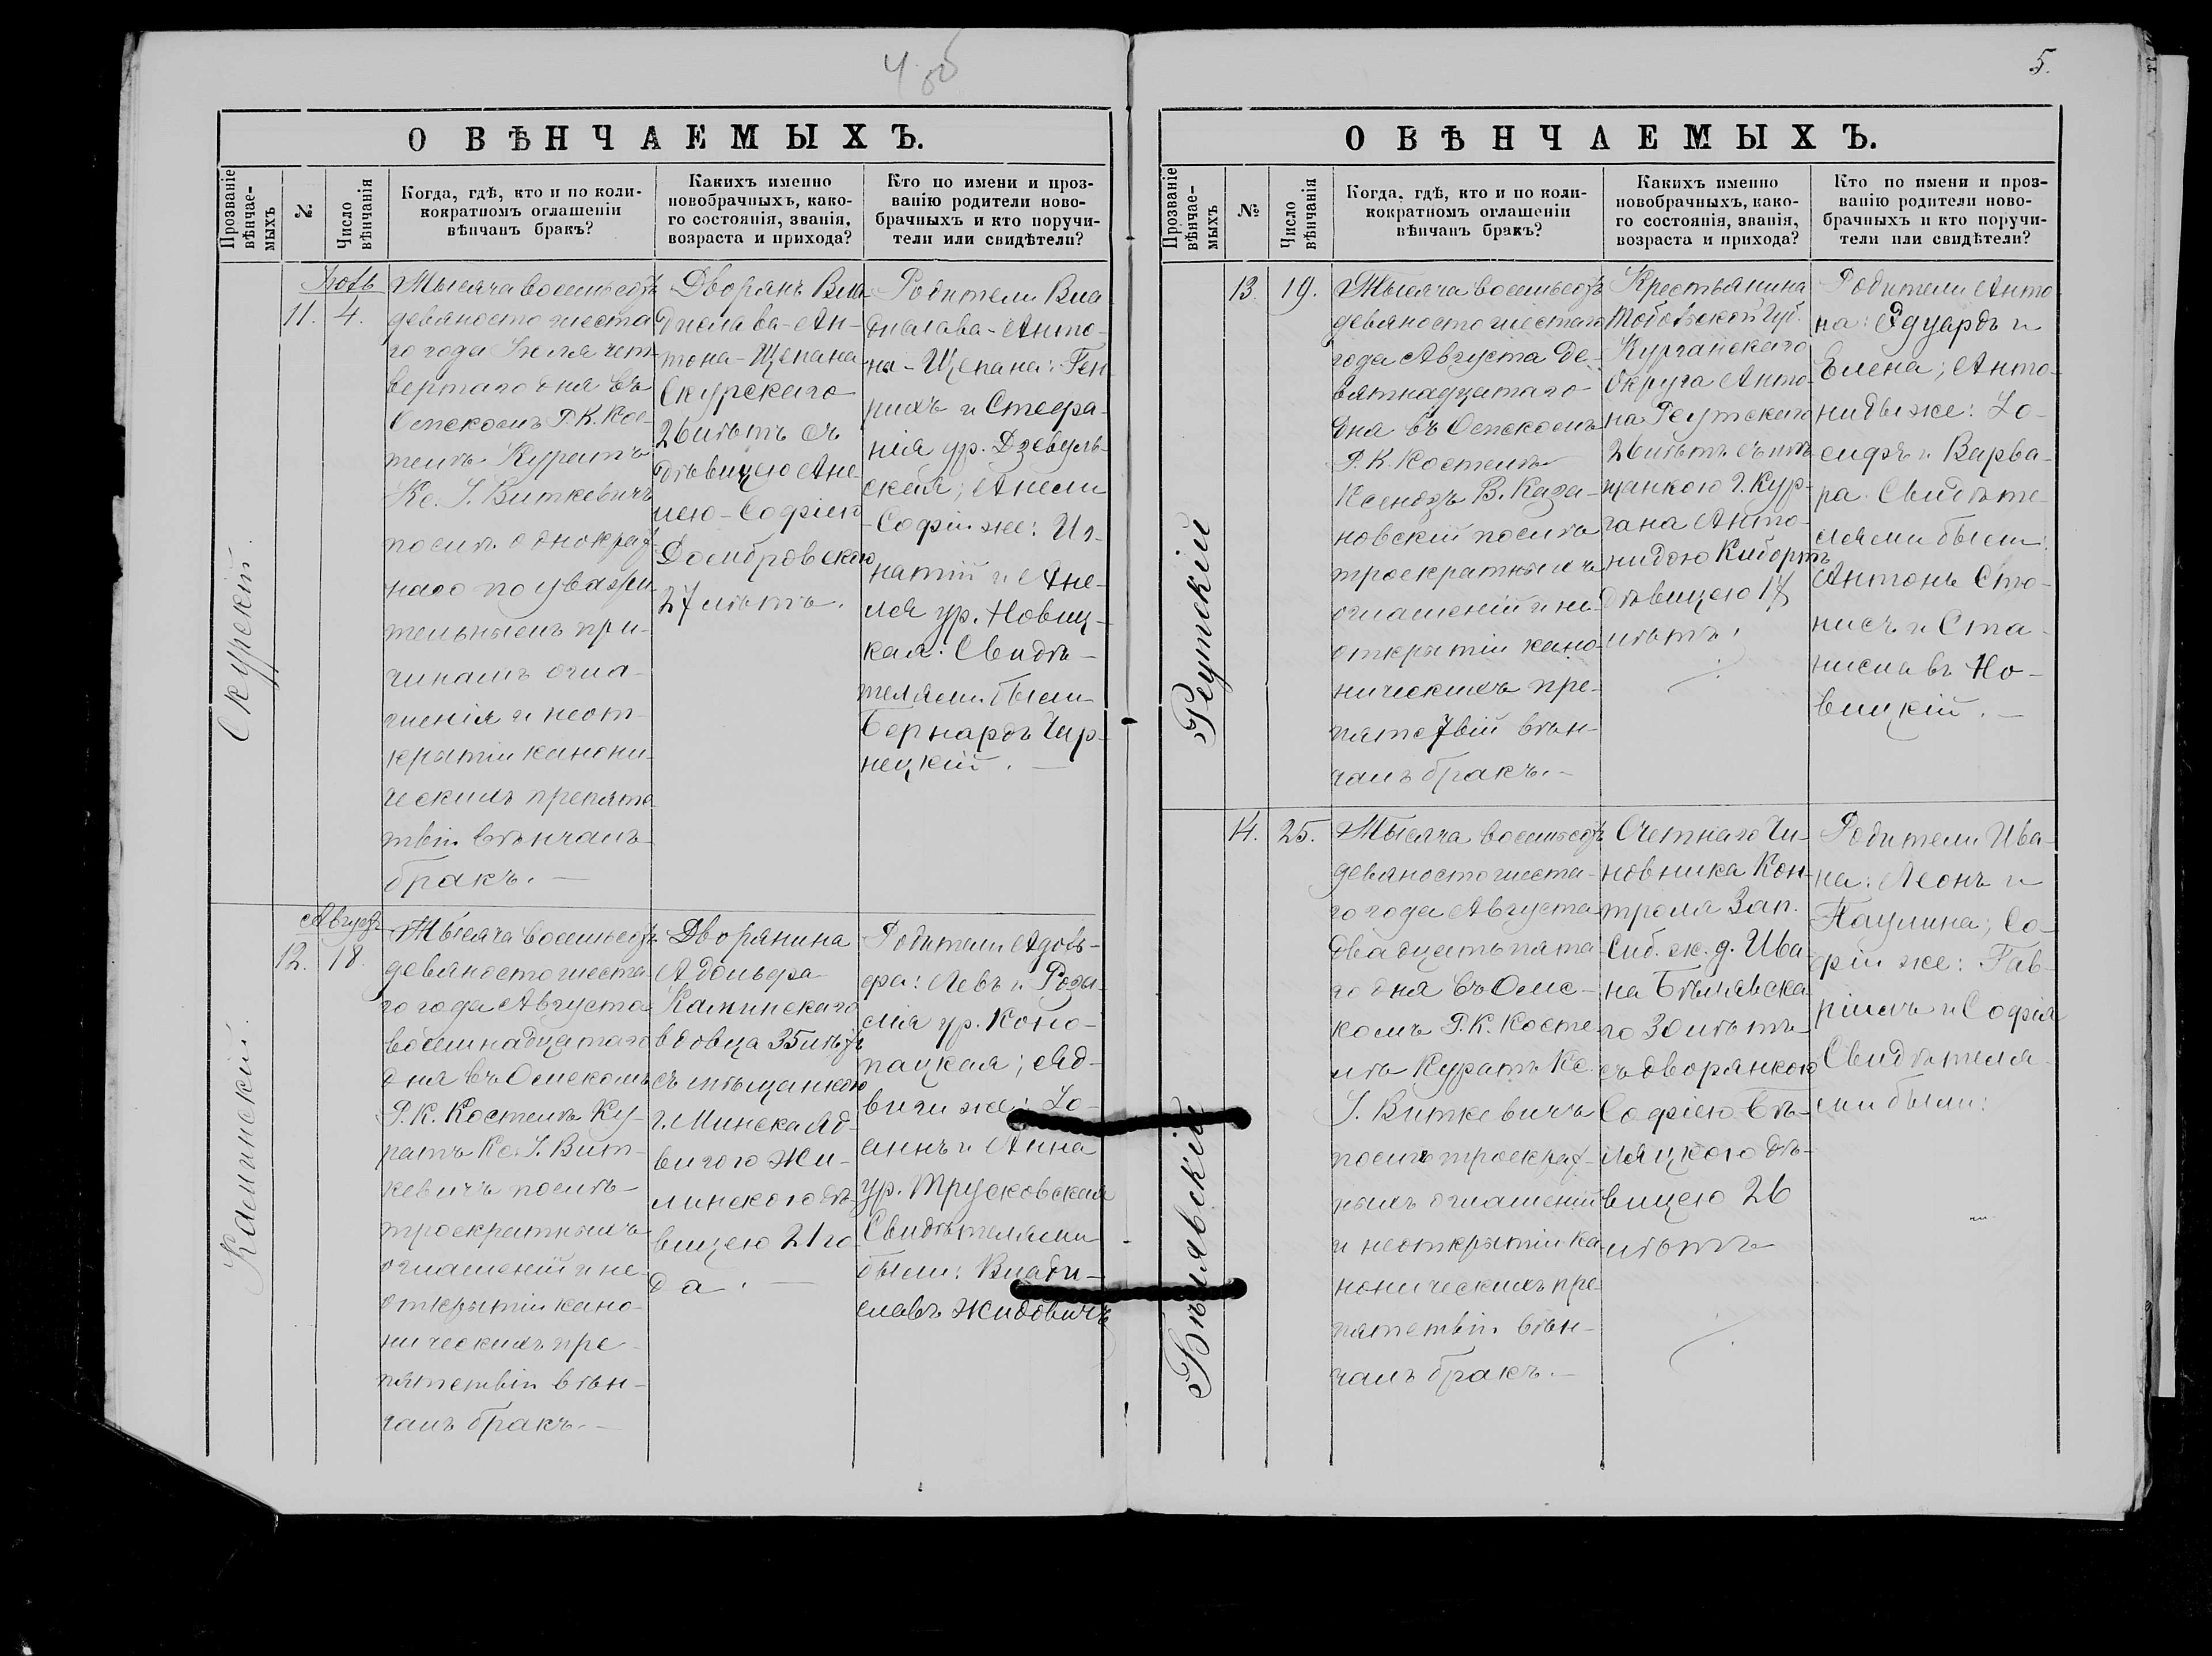 4 об
О ВѢНЧАЕМЫХЪ.
Прозваніе
вѣнчае-
мыхъ
№
Число
вѣнчанія
Когда, гдѣ, кто и по коли-
кократномъ оглашеніи
вѣнчанъ бракъ?
Какихъ именно
новобрачныхъ, како-
го состоянія, званія,
возраста и прихода?
Кто по имени и проз-
ванію родители ново-
брачныхъ и кто поручи-
тели или свидѣтели?
Скурскій.
11.
4.
Тысяча восемьсотъ
девяносто шеста
го года Іюля чет-
вертаго дня въ
Омскомъ Р. К. Кос-
телѣ Куратъ
Кс. І. Виткевичъ
послѣ однократ-
наго по уважи-
тельнымъ при-
чинамъ огла-
шенія и неот-
крытіи канони-
ческихъ препятс
твій вѣнчалъ
бракъ. —
Дворянъ Вла-
дислава-Ан-
тона-Щепана
Скурскаго
26 лѣтъ съ
дѣвицею Ане-
лею-Софіею
Домбровскою
27 лѣтъ.
Родители Вла
дислава-Анто-
на-Щепана: Ген-
рихъ и Стефа-
нія ур. Дзевуль-
ская; Анели
-Софіи же: Иг-
натій и Ане-
ля ур. Новиц-
кая. Свидѣ-
телями были
Бернардъ Чар-
нецкій. —
Каминскій.
Август
12.
18.
Тысяча восемьсотъ
девяносто шеста-
го года Августа
восемнадцатаго
дня въ Омскомъ
Р. К. Костелѣ Ку-
ратъ Кс. І. Вит-
кевичъ послѣ-
троекратныхъ
оглашеній и не-
открытіи кано-
ническихъ пре-
пятствій вѣн-
чалъ бракъ. —
Дворянина
Адольфа
Каминскаго
вдовца 35 лѣтъ
съ мѣщанкою
г. Минска Яд-
вигою Жи-
линскою дѣ-
вицею 21 го
да. —
Родители Адоль-
фа: Левъ и Роза-
лія ур. Коно-
пацкая; Яд-
виги же: Іо-
аннъ и Анна
ур. Трусковская
Свидѣтелями
были: Влади-
славъ Жидовичъ
5.
О ВѢНЧАЕМЫХЪ.
Прозваніе
вѣнчае-
мыхъ
№
Число
вѣнчанія
Когда, гдѣ, кто и по коли-
кократномъ оглашеніи
вѣнчанъ бракъ?
Какихъ именно
новобрачныхъ, како-
го состоянія, званія,
возраста и прихода?
Кто по имени и проз-
ванію родители ново-
брачныхъ и кто поручи-
тели или свидѣтели?
Реутскій
13.
19.
Тысяча восемьсотъ
девяносто шестаго
года Августа де-
вятнадцатаго
дня въ Омскомъ
Р. К. Костелѣ
Ксендзъ В. Каза-
новскій послѣ
троекратныхъ
оглашеній и не-
открытіи кано-
ническихъ пре-
пятствій вѣн-
чалъ бракъ. —
Крестьянина
Тобольской Губ.
Курганскаго
округа Анто-
на Реутскаго
26 лѣтъ съ мѣ-
щанкою г. Кур-
гана Анто-
нидою Кибортъ
дѣвицею 17
лѣтъ.
Родители Анто
на: Эдуардъ и
Елена; Анто-
ниды же: Іо-
сифъ и Варва-
ра. Свидѣте-
лями были:
Антонъ Сто-
нисъ и Ста-
ниславъ Но-
вицкій. —
Бѣлявскій
14.
25.
Тысяча восемьсотъ
девяносто шеста-
го года Августа
двадцать пята
го дня въ Омс-
комъ Р. К. Косте-
лѣ Куратъ Кс.
І. Виткевичъ
послѣ троекрат-
ныхъ оглашеній
и неоткрытіи ка-
ноническихъ пре-
пятствій вѣн-
чалъ бракъ. —
Счетнаго Чи-
новника Кон-
троля Зап.
Сиб. ж. д. Ива
на Бѣлявска
го 30 лѣтъ
съ дворянкою
Софіею Бѣ-
ляцкою дѣ-
вицею 26
лѣтъ
Родители Ива-
на: Леонъ и
Паулина; Со-
фіи же: Гав-
ріилъ и Софія
Свидѣтеля-
ми были: